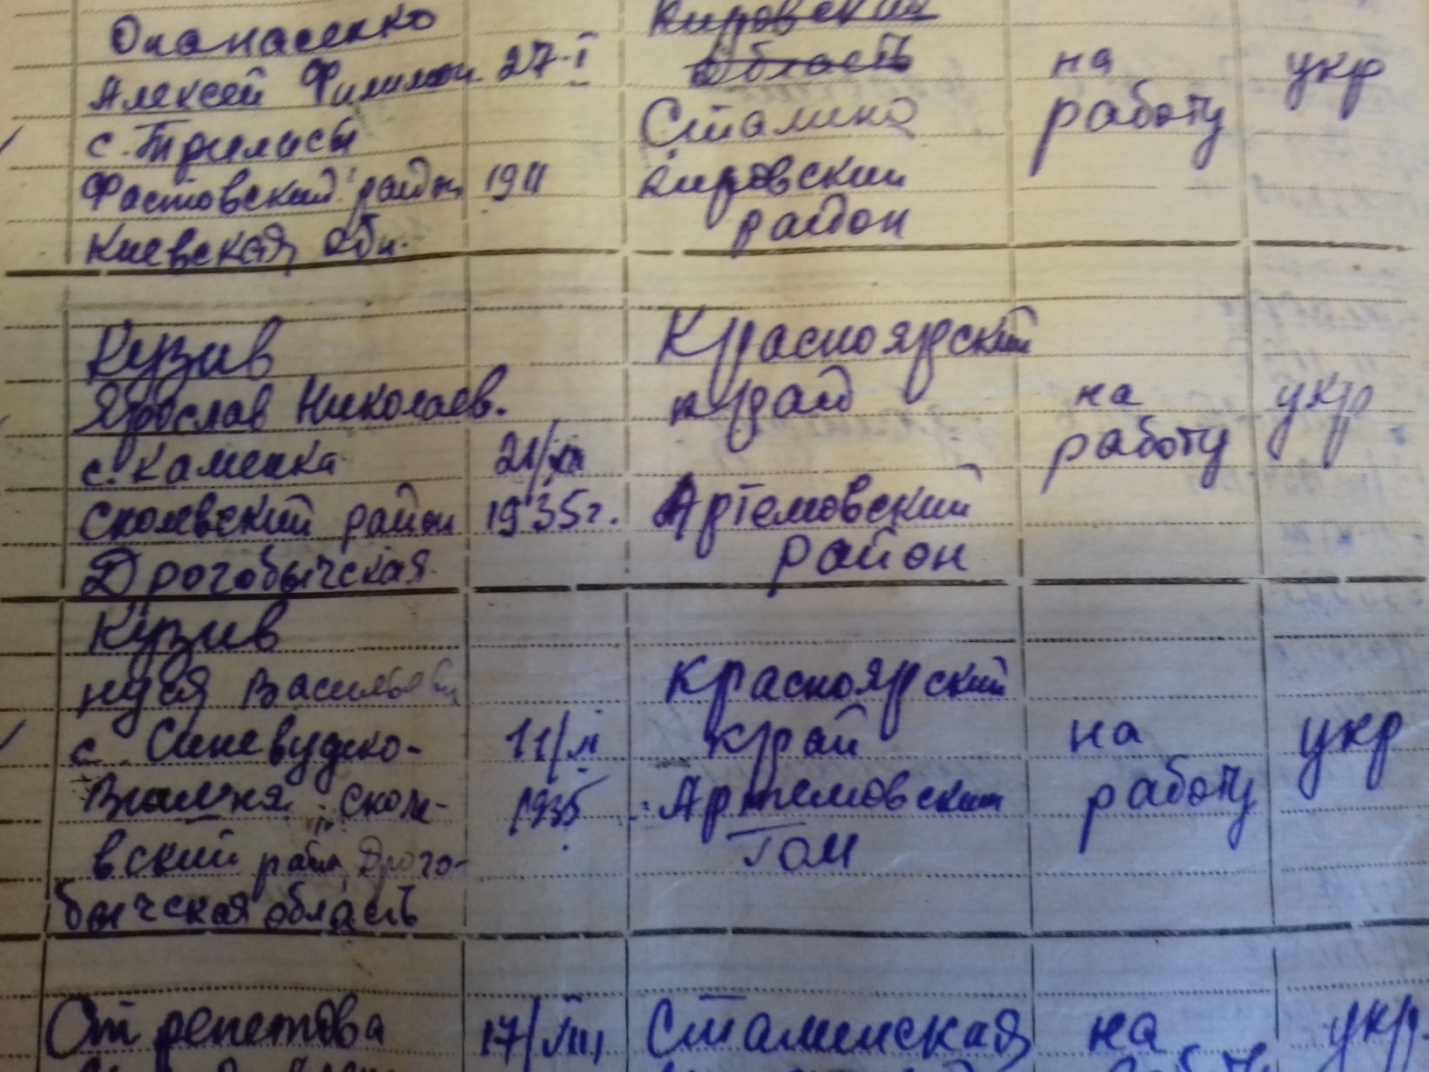 Опанасенко
Алексей Филимон. 27-I
с. Трилисы
Фастовский район 1911
Киевская обл.
Кировский
область
Сталино
Кировский
район
на
работу
укр
Кузив
Ярослав Николаев.
с. Каменка 21/
Сколевский район 1935г.
Дрогобычская
Красноярский
край
Артемовский
район
на
работу
укр
Кузив
Васильевн
с. Синевудско- 11/II
Вишня Сколе-
1935
вский район Дрого-
бычская область
Красноярский
край
Артемовский
на
работу
укр
Отрепетова 17/VIII Сталинская на укр.